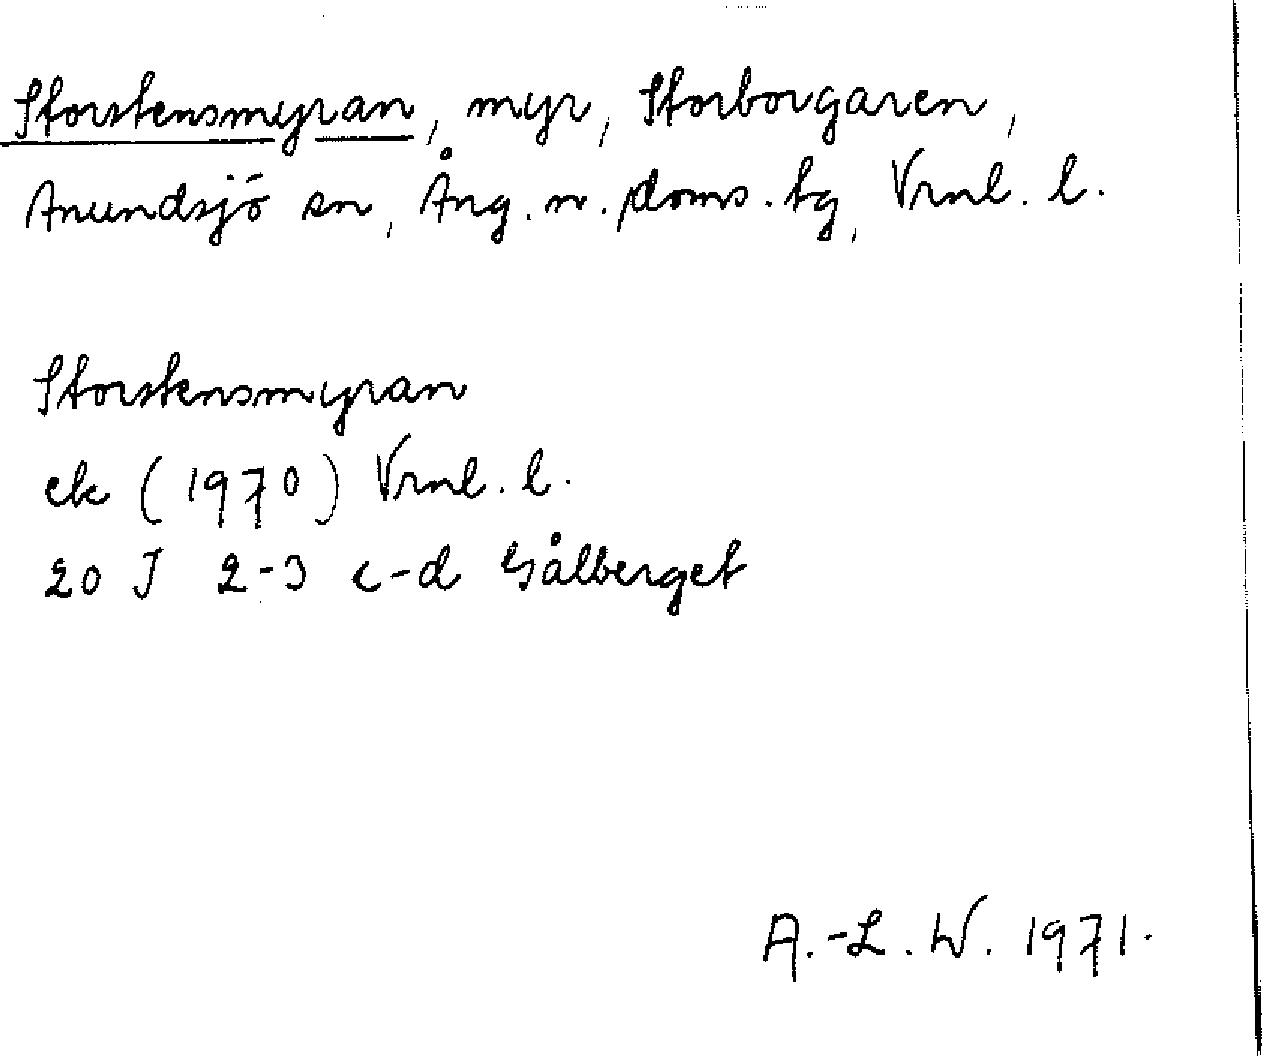 Storstensmyran, myr, Storborgaren,
Anundsjö sn, Ång. n. doms. tg, Vrnl. l.
Storstensmyran
ek (1970) Vrnl. l.
20 J 2-3 c-d Gålberget
A.-L. W. 1971.